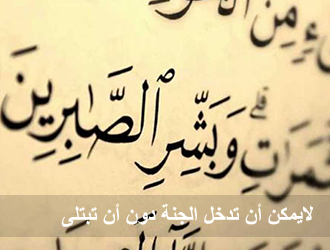 ءٍ مِنَ
مَرَاتِ ۗ وَبَشِّرِ الصَّابِرِينَ
لايمكن أن تدخل الجنة دون أن تبتلى